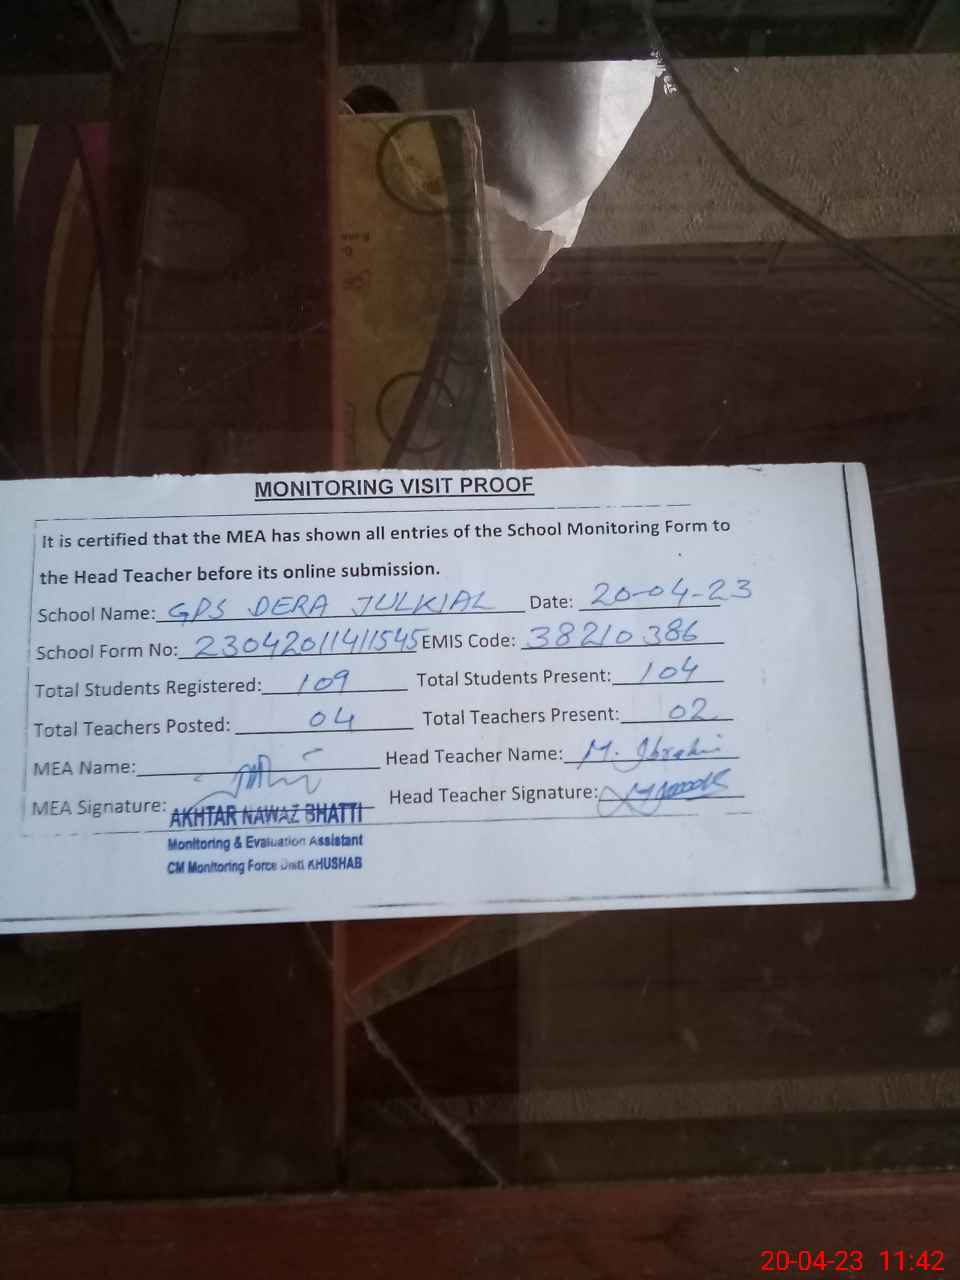 MONITORING VISIT PROOF
It is certified that the MEA has shown all entries of the School Monitoring Form to
the Head Teacher before its online submission.
School Name: GPS DERA JULKIAL Date: 20-04-23
School Form No: 23042011411545 EMIS Code: 38210386
Total Students Registered: 109 Total Students Present: 104
Total Teachers Posted: 04 Total Teachers Present: 02
MEA Name: Head Teacher Name: M. Ibrahim
MEA Signature: Head Teacher Signature:
AKHTAR NAWAZ BHATTI
Monitoring & Evaluation Assistant
CM Monitoring Force Distt KHUSHAB
20-04-23 11:42